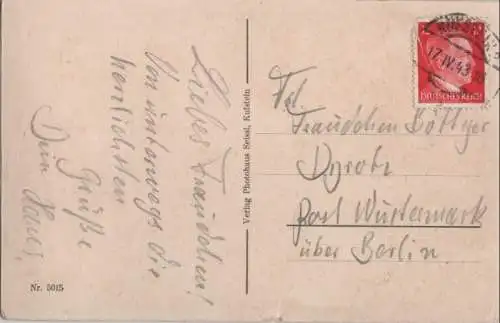 Liebes Traudchen!
Von unterwegs die
herzlichsten
Grüße
Dein Hans
Nr. 5015
Verlag Photohaus Seisel, Kufstein
17.IV.43
DEUTSCHES REICH
Frl.
Traudchen Böttger
Dyrotz
Post Wustermark
über Berlin